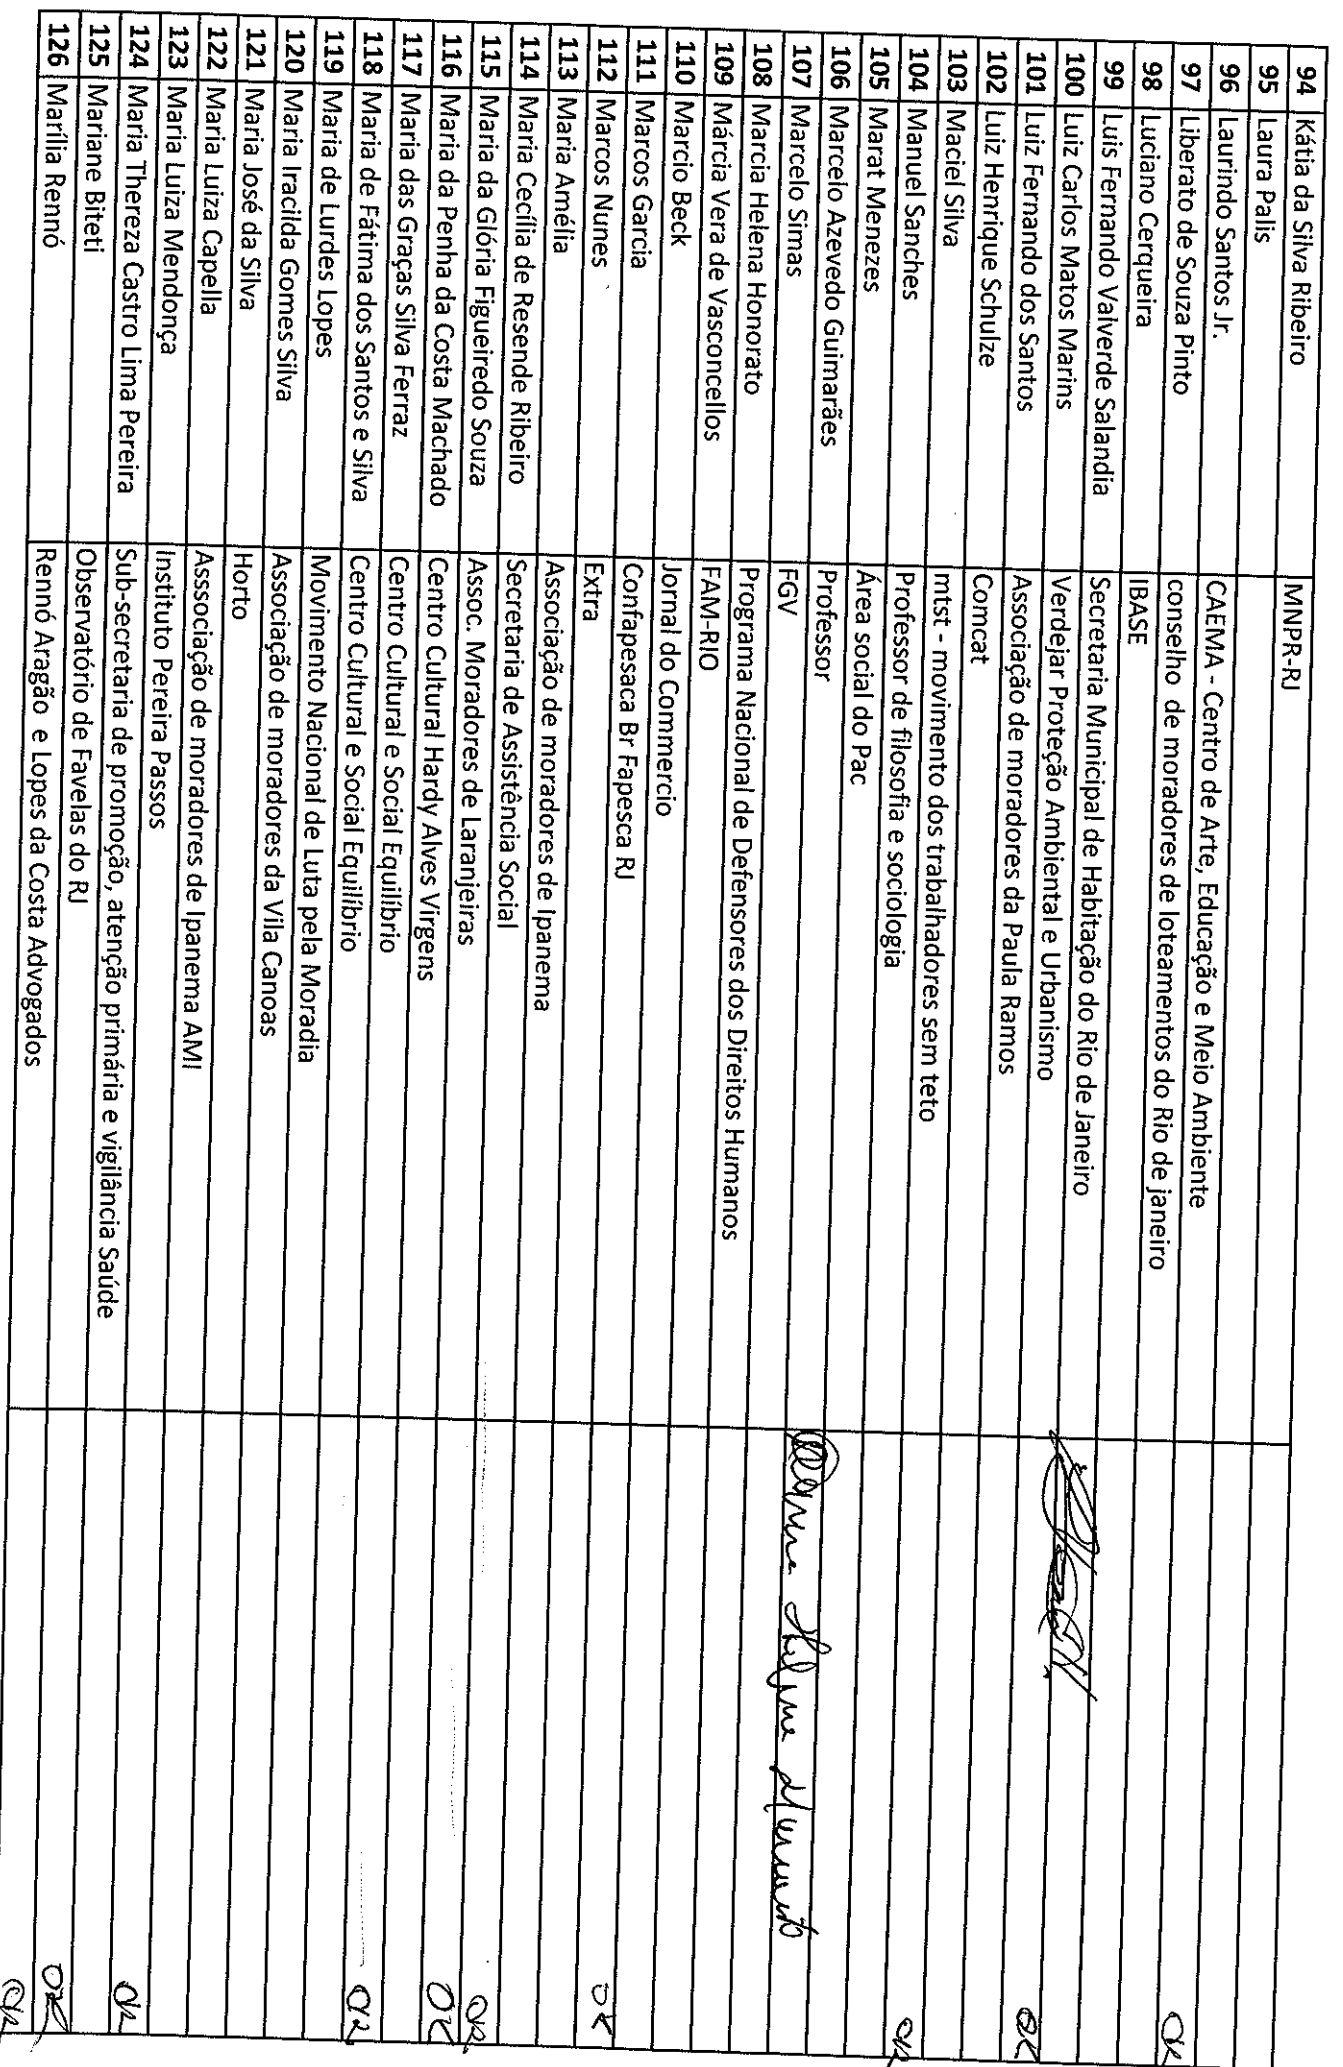 94 Kátia da Silva Ribeiro MNPR-RJ
95 Laura Palis
96 Laurindo Santos Jr. CAEMA - Centro de Arte, Educação e Meio Ambiente OK
97 Liberato de Souza Pinto conselho de moradores de loteamentos do Rio de janeiro
98 Luciano Cerqueira IBASE
99 Luis Fernando Valverde Salandia Secretaria Municipal de Habitação do Rio de Janeiro
100 Luiz Carlos Matos Marins Verdejar Proteção Ambiental e Urbanismo OK
101 Luiz Fernando dos Santos Associação de moradores da Paula Ramos
102 Luiz Henrique Schulze Comcat
103 Maciel Silva mtst - movimento dos trabalhadores sem teto OK
104 Manuel Sanches Professor de filosofia e sociologia
105 Marat Menezes Área social do Pac
106 Marcelo Azevedo Guimarães Professor
107 Marcelo Simas FGV Marcia Helena Honorato
108 Marcia Helena Honorato Programa Nacional de Defensores dos Direitos Humanos
109 Márcia Vera de Vasconcellos FAM-RIO
110 Marcio Beck Jornal do Commercio
111 Marcos Garcia Confapesaca Br Fapesca RJ OK
112 Marcos Nunes Extra
113 Maria Amélia Associação de moradores de Ipanema
114 Maria Cecília de Resende Ribeiro Secretaria de Assistência Social OK
115 Maria da Glória Figueiredo Souza Assoc. Moradores de Laranjeiras OK
116 Maria da Penha da Costa Machado Centro Cultural Hardy Alves Virgens
117 Maria das Graças Silva Ferraz Centro Cultural e Social Equilíbrio OK
118 Maria de Fátima dos Santos e Silva Centro Cultural e Social Equilíbrio
119 Maria de Lurdes Lopes Movimento Nacional de Luta pela Moradia
120 Maria Iracilda Gomes Silva Associação de moradores da Vila Canoas
121 Maria José da Silva Horto
122 Maria Luiza Capella Associação de moradores de Ipanema AMI
123 Maria Luiza Mendonça Instituto Pereira Passos OK
124 Maria Thereza Castro Lima Pereira Sub-secretaria de promoção, atenção primária e vigilância Saúde
125 Mariane Biteti Observatório de Favelas do RJ OK
126 Marília Rennó Rennó Aragão e Lopes da Costa Advogados OK